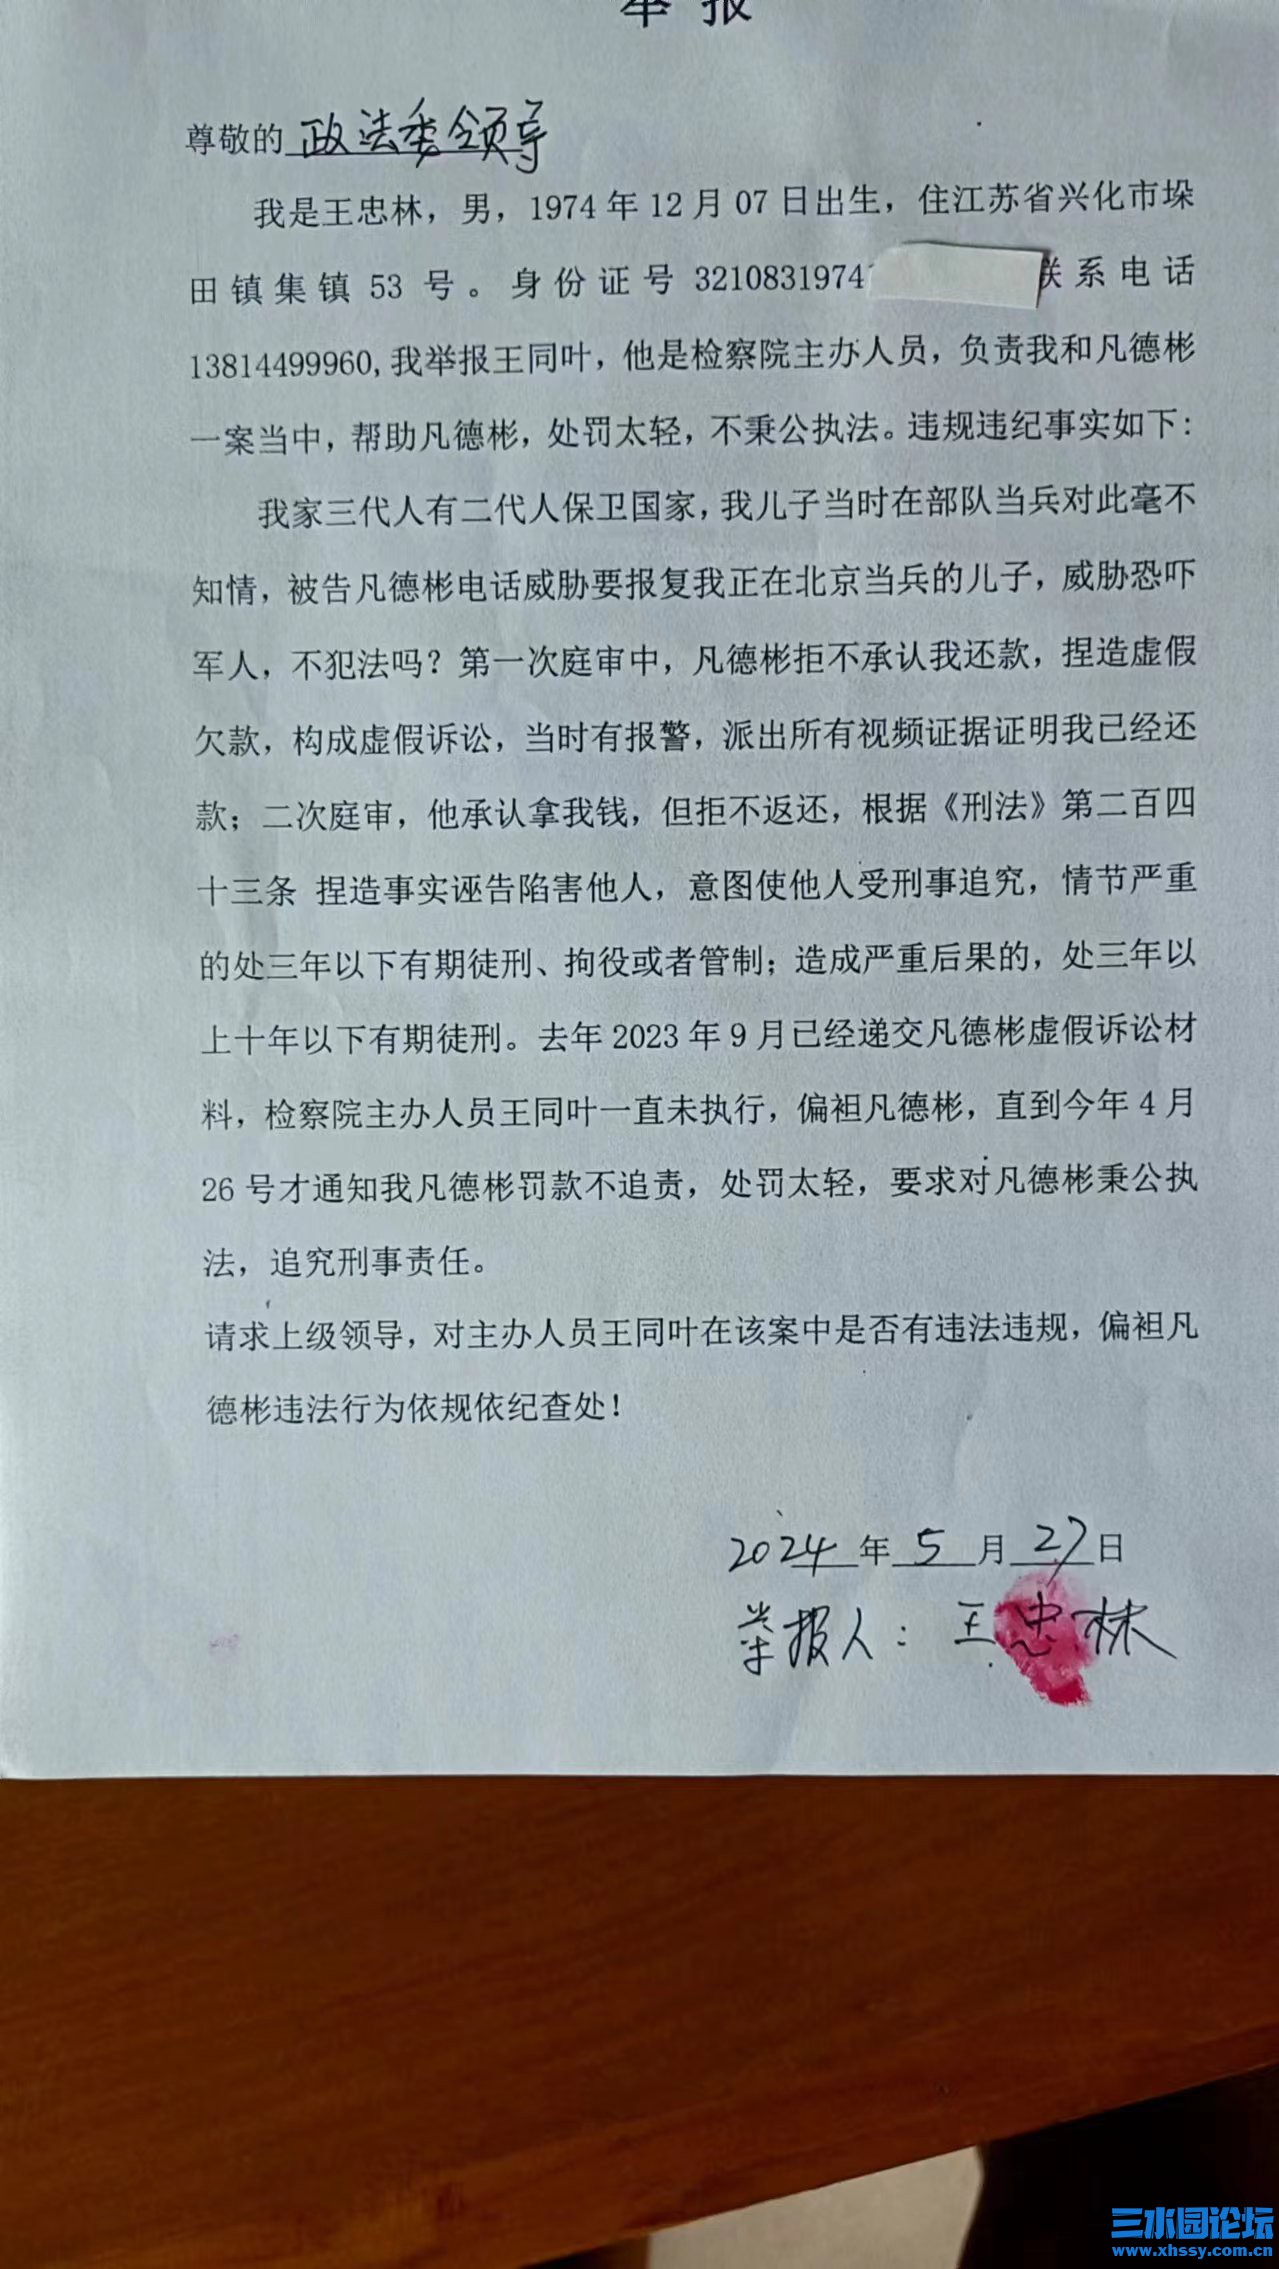 举报
尊敬的政法委领导
我是王忠林，男，1974年12月07日出生，住江苏省兴化市垛
田镇集镇53号。身份证号3210831974 联系电话
13814499960,我举报王同叶，他是检察院主办人员，负责我和凡德彬
一案当中，帮助凡德彬，处罚太轻，不秉公执法。违规违纪事实如下：
我家三代人有二代人保卫国家，我儿子当时在部队当兵对此毫不
知情，被告凡德彬电话威胁要报复我正在北京当兵的儿子，威胁恐吓
军人，不犯法吗？第一次庭审中，凡德彬拒不承认我还款，捏造虚假
欠款，构成虚假诉讼，当时有报警，派出所有视频证据证明我已经还
款；二次庭审，他承认拿我钱，但拒不返还，根据《刑法》第二百四
十三条 捏造事实诬告陷害他人，意图使他人受刑事追究，情节严重
的处三年以下有期徒刑、拘役或者管制；造成严重后果的，处三年以
上十年以下有期徒刑。去年2023年9月已经递交凡德彬虚假诉讼材
料，检察院主办人员王同叶一直未执行，偏袒凡德彬，直到今年4月
26号才通知我凡德彬罚款不追责，处罚太轻，要求对凡德彬秉公执
法，追究刑事责任。
请求上级领导，对主办人员王同叶在该案中是否有违法违规，偏袒凡
德彬违法行为依规依纪查处！
2024年5月27日
举报人：王忠林
三水园论坛
www.xhssy.com.cn